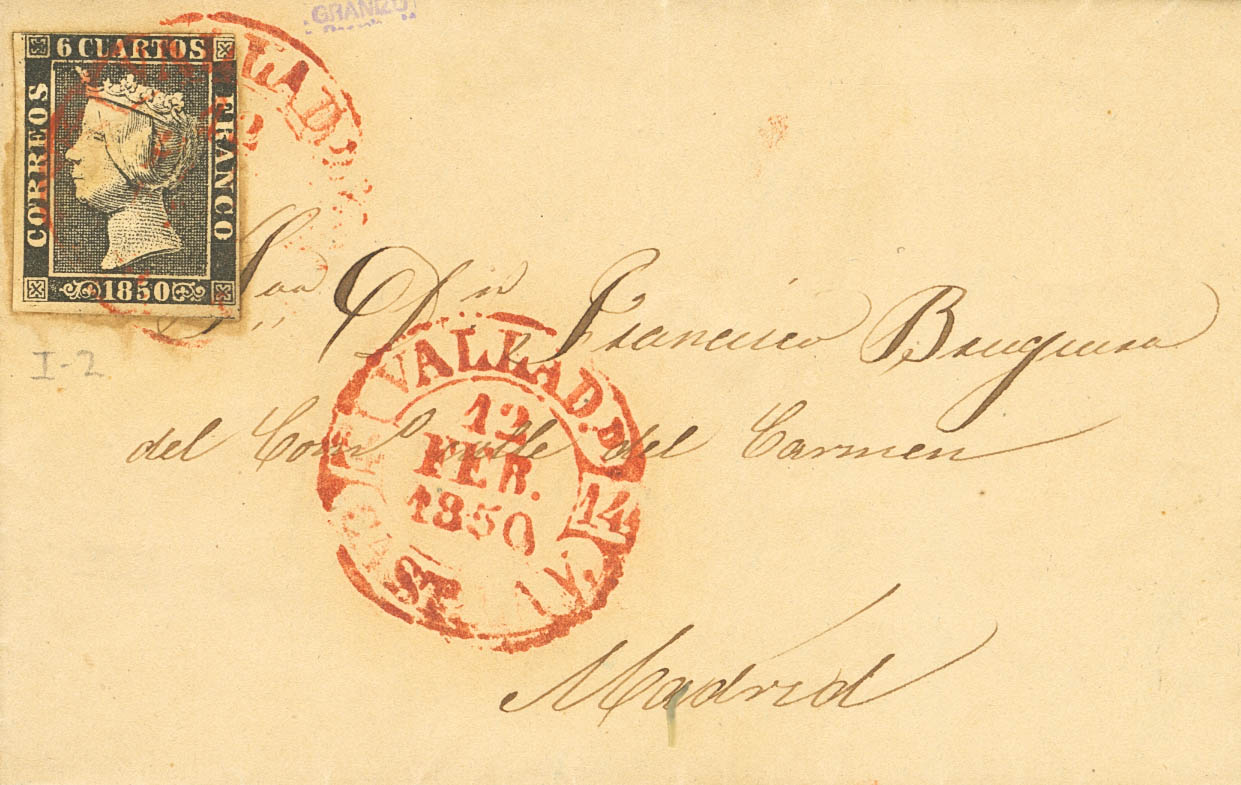 GRANIZO
6 CUARTOS
CORREOS
FRANCO
1850
LLAD
Sor Dn Francisco Bruguera
del Como calle del Carmen
VALLAD.D
12
FEB.
1850
14
Madrid